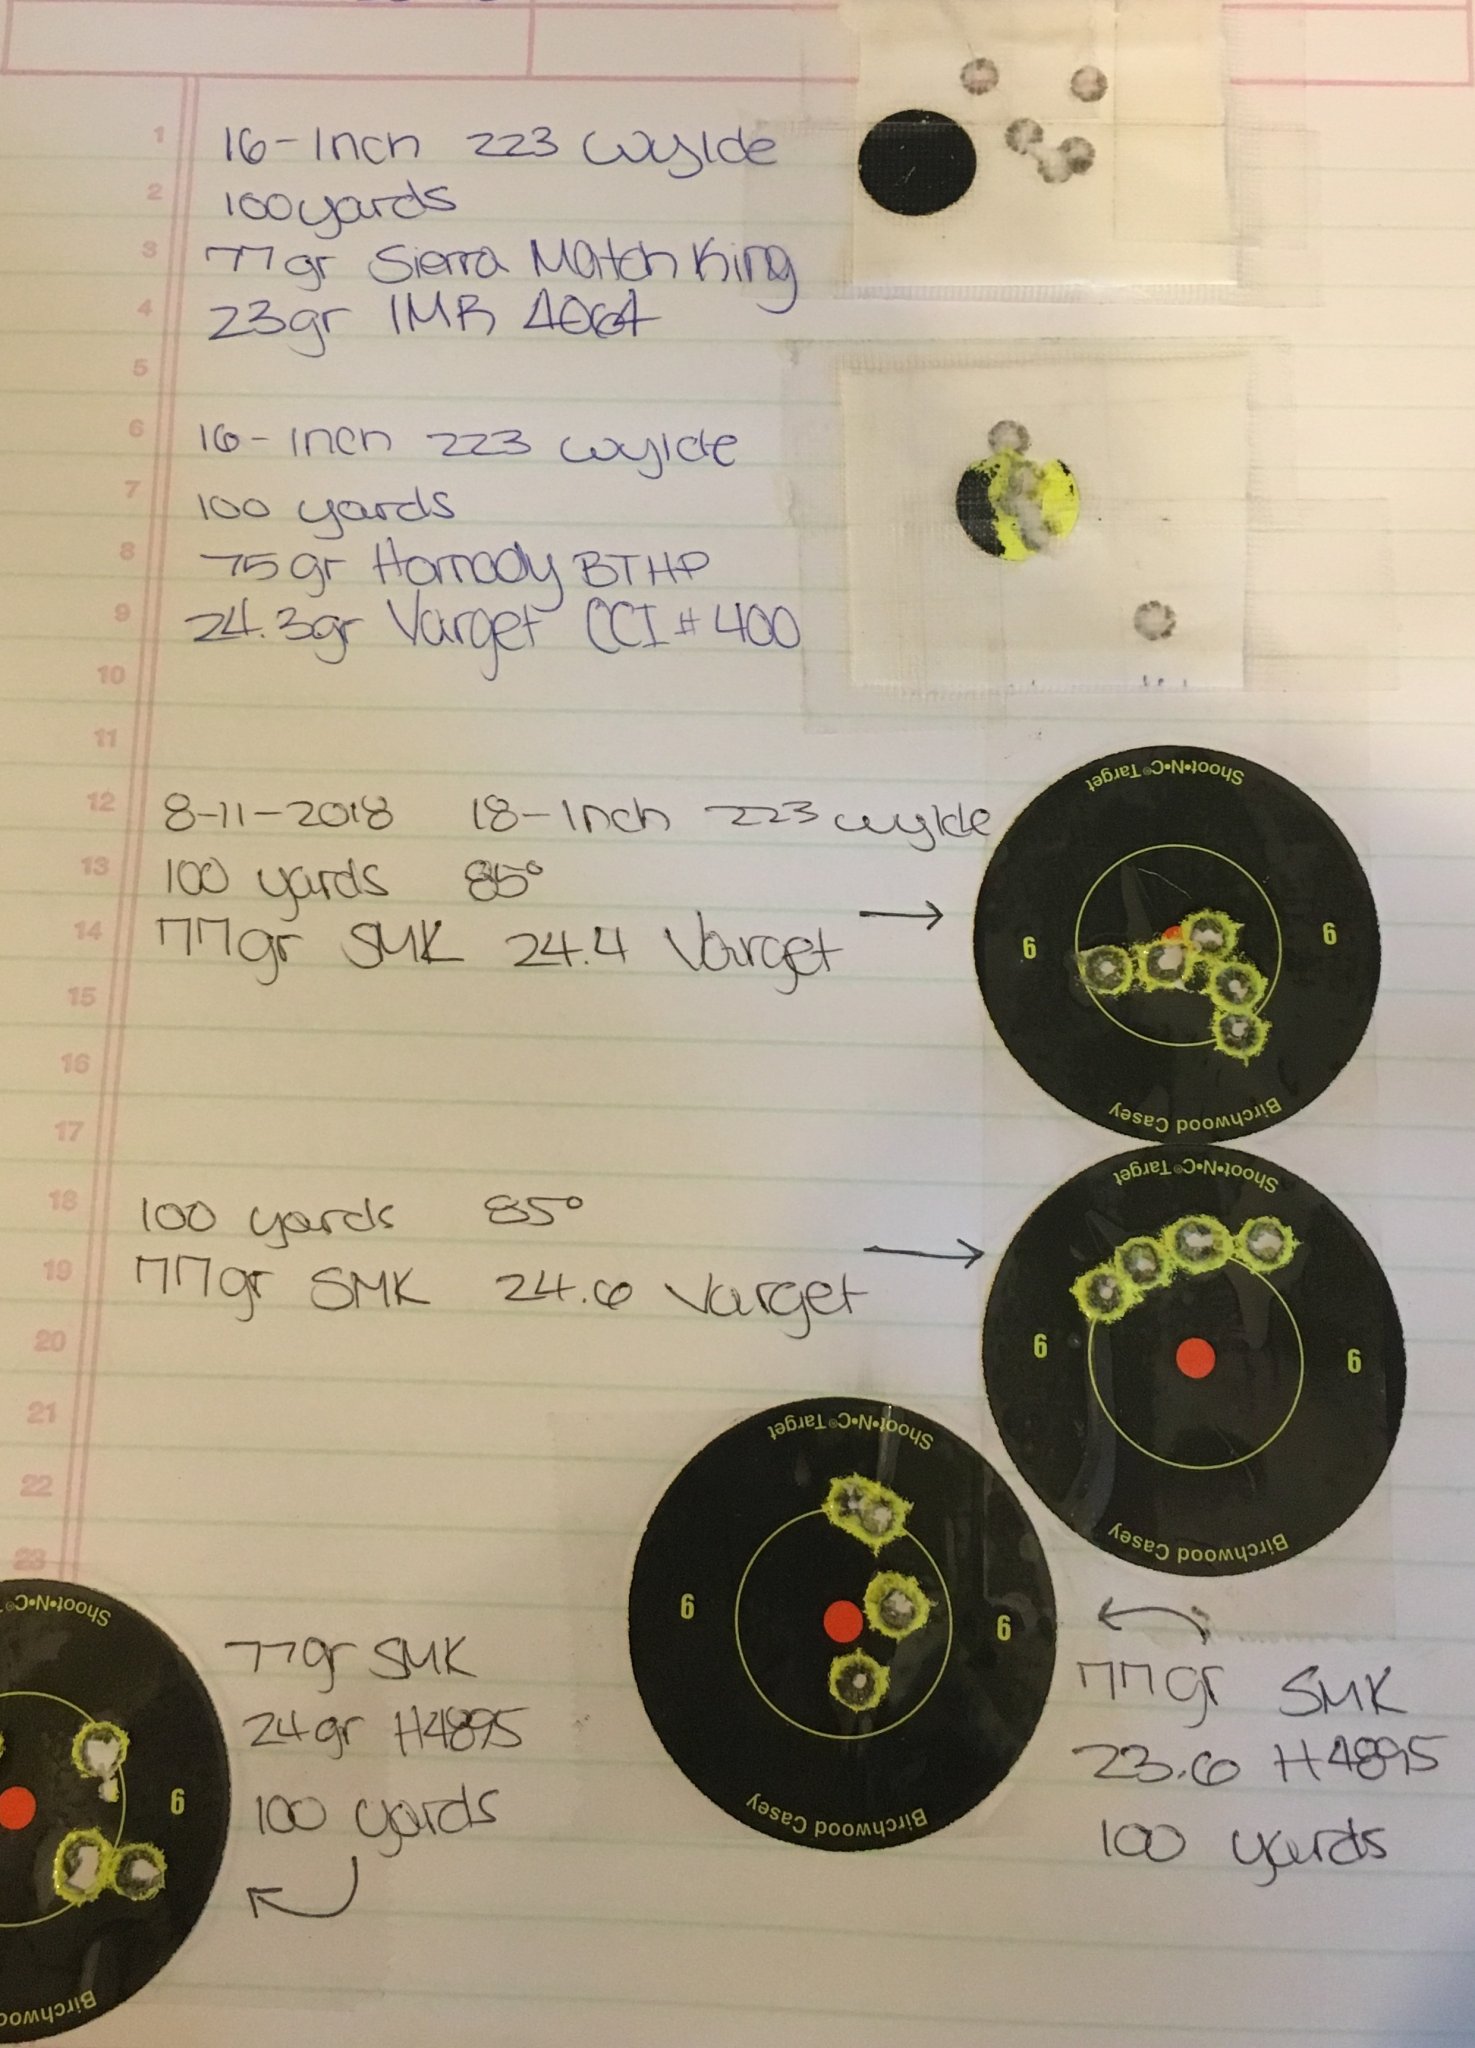 1
2
3
4
5
6
7
8
9
10
11
12
13
14
15
16
17
18
19
20
21
22
23
16-Inch 223 Wylde
100 yards
77gr Sierra MatchKing
23gr IMR 4064
16-Inch 223 Wylde
100 yards
75gr Hornady BTHP
24.3gr Varget CCI #400
8-11-2018 18-Inch 223 Wylde
100 yards 85°
77gr SMK 24.4 Varget
Shoot•N•C® Target
6 6
Birchwood Casey
100 yards 85°
77gr SMK 24.6 Varget
Shoot•N•C® Target
6 6
Birchwood Casey
Shoot•N•C® Target
6 6
Birchwood Casey
77gr SMK
23.6 H4895
100 yards
77gr SMK
24gr H4895
100 yards
Shoot•N•C®
6
Birchwoo